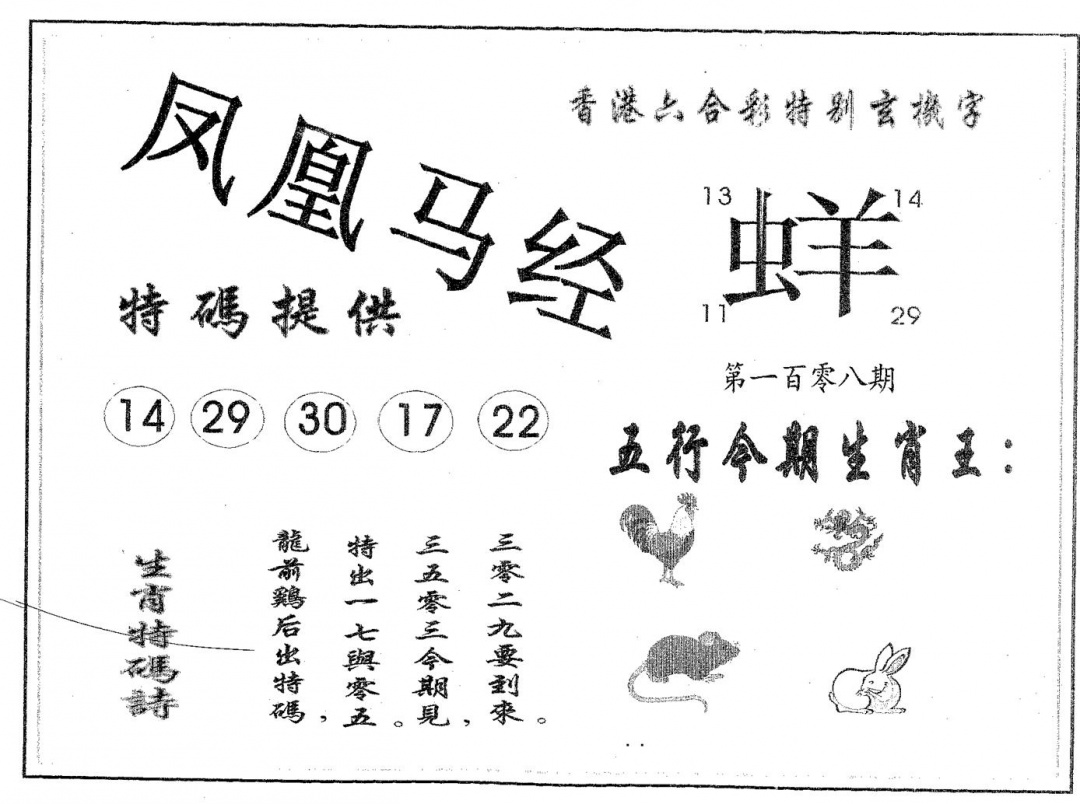 凤凰马经
香港六合彩特别玄機字
13 14
蛘
11 29
特碼提供
14 29 30 17 22
第一百零八期
五行今期生肖王：
生肖特碼詩
龍前鷄后出特碼，
特出一七與零五。
三五零三今期見，
三零二九要到來。